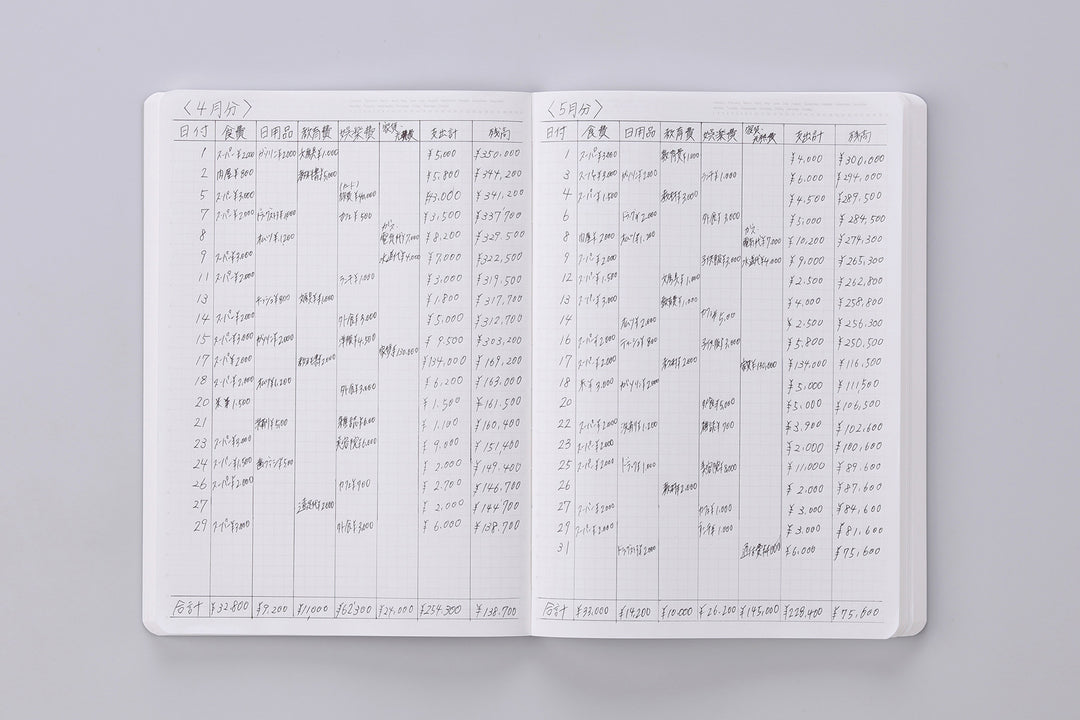 〈4月分〉
日付 食費 日用品 教育費 娯楽費 支出計 残高
1 スーパー¥2000 ガソリン¥2000 文房具¥1,000 ¥5,000 ¥350,000
2 肉屋¥800 教材費¥5,000 ¥5,800 ¥344,200
5 スーパー¥3,000 ¥3,000 ¥341,200
7 スーパー¥2000 カフェ¥500 ¥3,500 ¥337,700
8 ¥1,200 電気代¥7,000 ¥8,200 ¥329,500
9 スーパー¥3,000 水道代¥4,000 ¥7,000 ¥322,500
11 スーパー¥2000 ランチ¥1,000 ¥3,000 ¥319,500
13 ティッシュ¥800 文房具¥1,000 ¥1,800 ¥317,700
14 スーパー¥2000 外食¥3,000 ¥5,000 ¥312,700
15 スーパー¥3,000 ガソリン¥2,000 洋服¥4,500 ¥9,500 ¥303,200
17 スーパー¥2000 教材費¥2000 家賃¥130,000 ¥134,000 ¥169,200
18 スーパー¥2,000 ¥1,200 外食¥3,000 ¥6,200 ¥163,000
20 ¥1,500 ¥1,500 ¥161,500
21 洗剤¥500 雑誌¥600 ¥1,100 ¥160,400
23 スーパー¥3,000 美容院¥6,000 ¥9,000 ¥151,400
24 スーパー¥1,500 歯ブラシ¥500 ¥2,000 ¥149,400
26 スーパー¥2,000 カフェ¥900 ¥2,700 ¥146,700
27 ¥2000 ¥2,000 ¥144,700
29 スーパー¥3000 外食¥3,000 ¥6,000 ¥138,700
合計 ¥32,800 ¥9,200 ¥11,000 ¥62,300 ¥254,300 ¥138,700
〈5月分〉
日付 食費 日用品 教育費 娯楽費 支出計 残高
1 スーパー¥3,000 教育費¥1,000 ¥4,000 ¥300,000
3 スーパー¥3,000 ガソリン¥2000 ランチ¥1,000 ¥6,000 ¥294,000
4 スーパー¥1,500 教材¥3,000 ¥4,500 ¥289,500
6 ドラッグ¥2,000 外食¥3,000 ¥5,000 ¥284,500
8 肉屋¥2000 電気代¥7,000 ¥10,200 ¥274,300
9 スーパー¥2000 子供服¥3,000 水道代¥4,000 ¥9,000 ¥265,300
12 スーパー¥1,500 文房具¥1,000 ¥2,500 ¥262,800
13 スーパー¥3,000 教育費¥1,000 ¥4,000 ¥258,800
14 ¥2,000 カフェ¥500 ¥2,500 ¥256,300
16 スーパー¥2000 ティッシュ¥800 子供服¥3,000 ¥5,800 ¥250,500
17 スーパー¥2000 教材¥2000 家賃¥130,000 ¥134,000 ¥116,500
18 米¥3,000 ガソリン¥2000 ¥5,000 ¥111,500
20 外食¥5,000 ¥5,000 ¥106,500
22 スーパー¥2000 洗剤¥1,200 雑誌¥700 ¥3,900 ¥102,600
23 スーパー¥2000 ¥2,000 ¥100,600
25 スーパー¥2000 ドラッグ¥1,000 美容院¥8,000 ¥11,000 ¥89,600
26 教材¥2,000 ¥2,000 ¥87,600
27 スーパー¥2000 カフェ¥1,000 ¥3,000 ¥84,600
29 スーパー¥2000 ランチ¥1,000 ¥3,000 ¥81,600
31 ¥2000 ¥6,000 ¥75,600
合計 ¥33,000 ¥14,200 ¥10,000 ¥26,200 ¥145,000 ¥228,400 ¥75,600